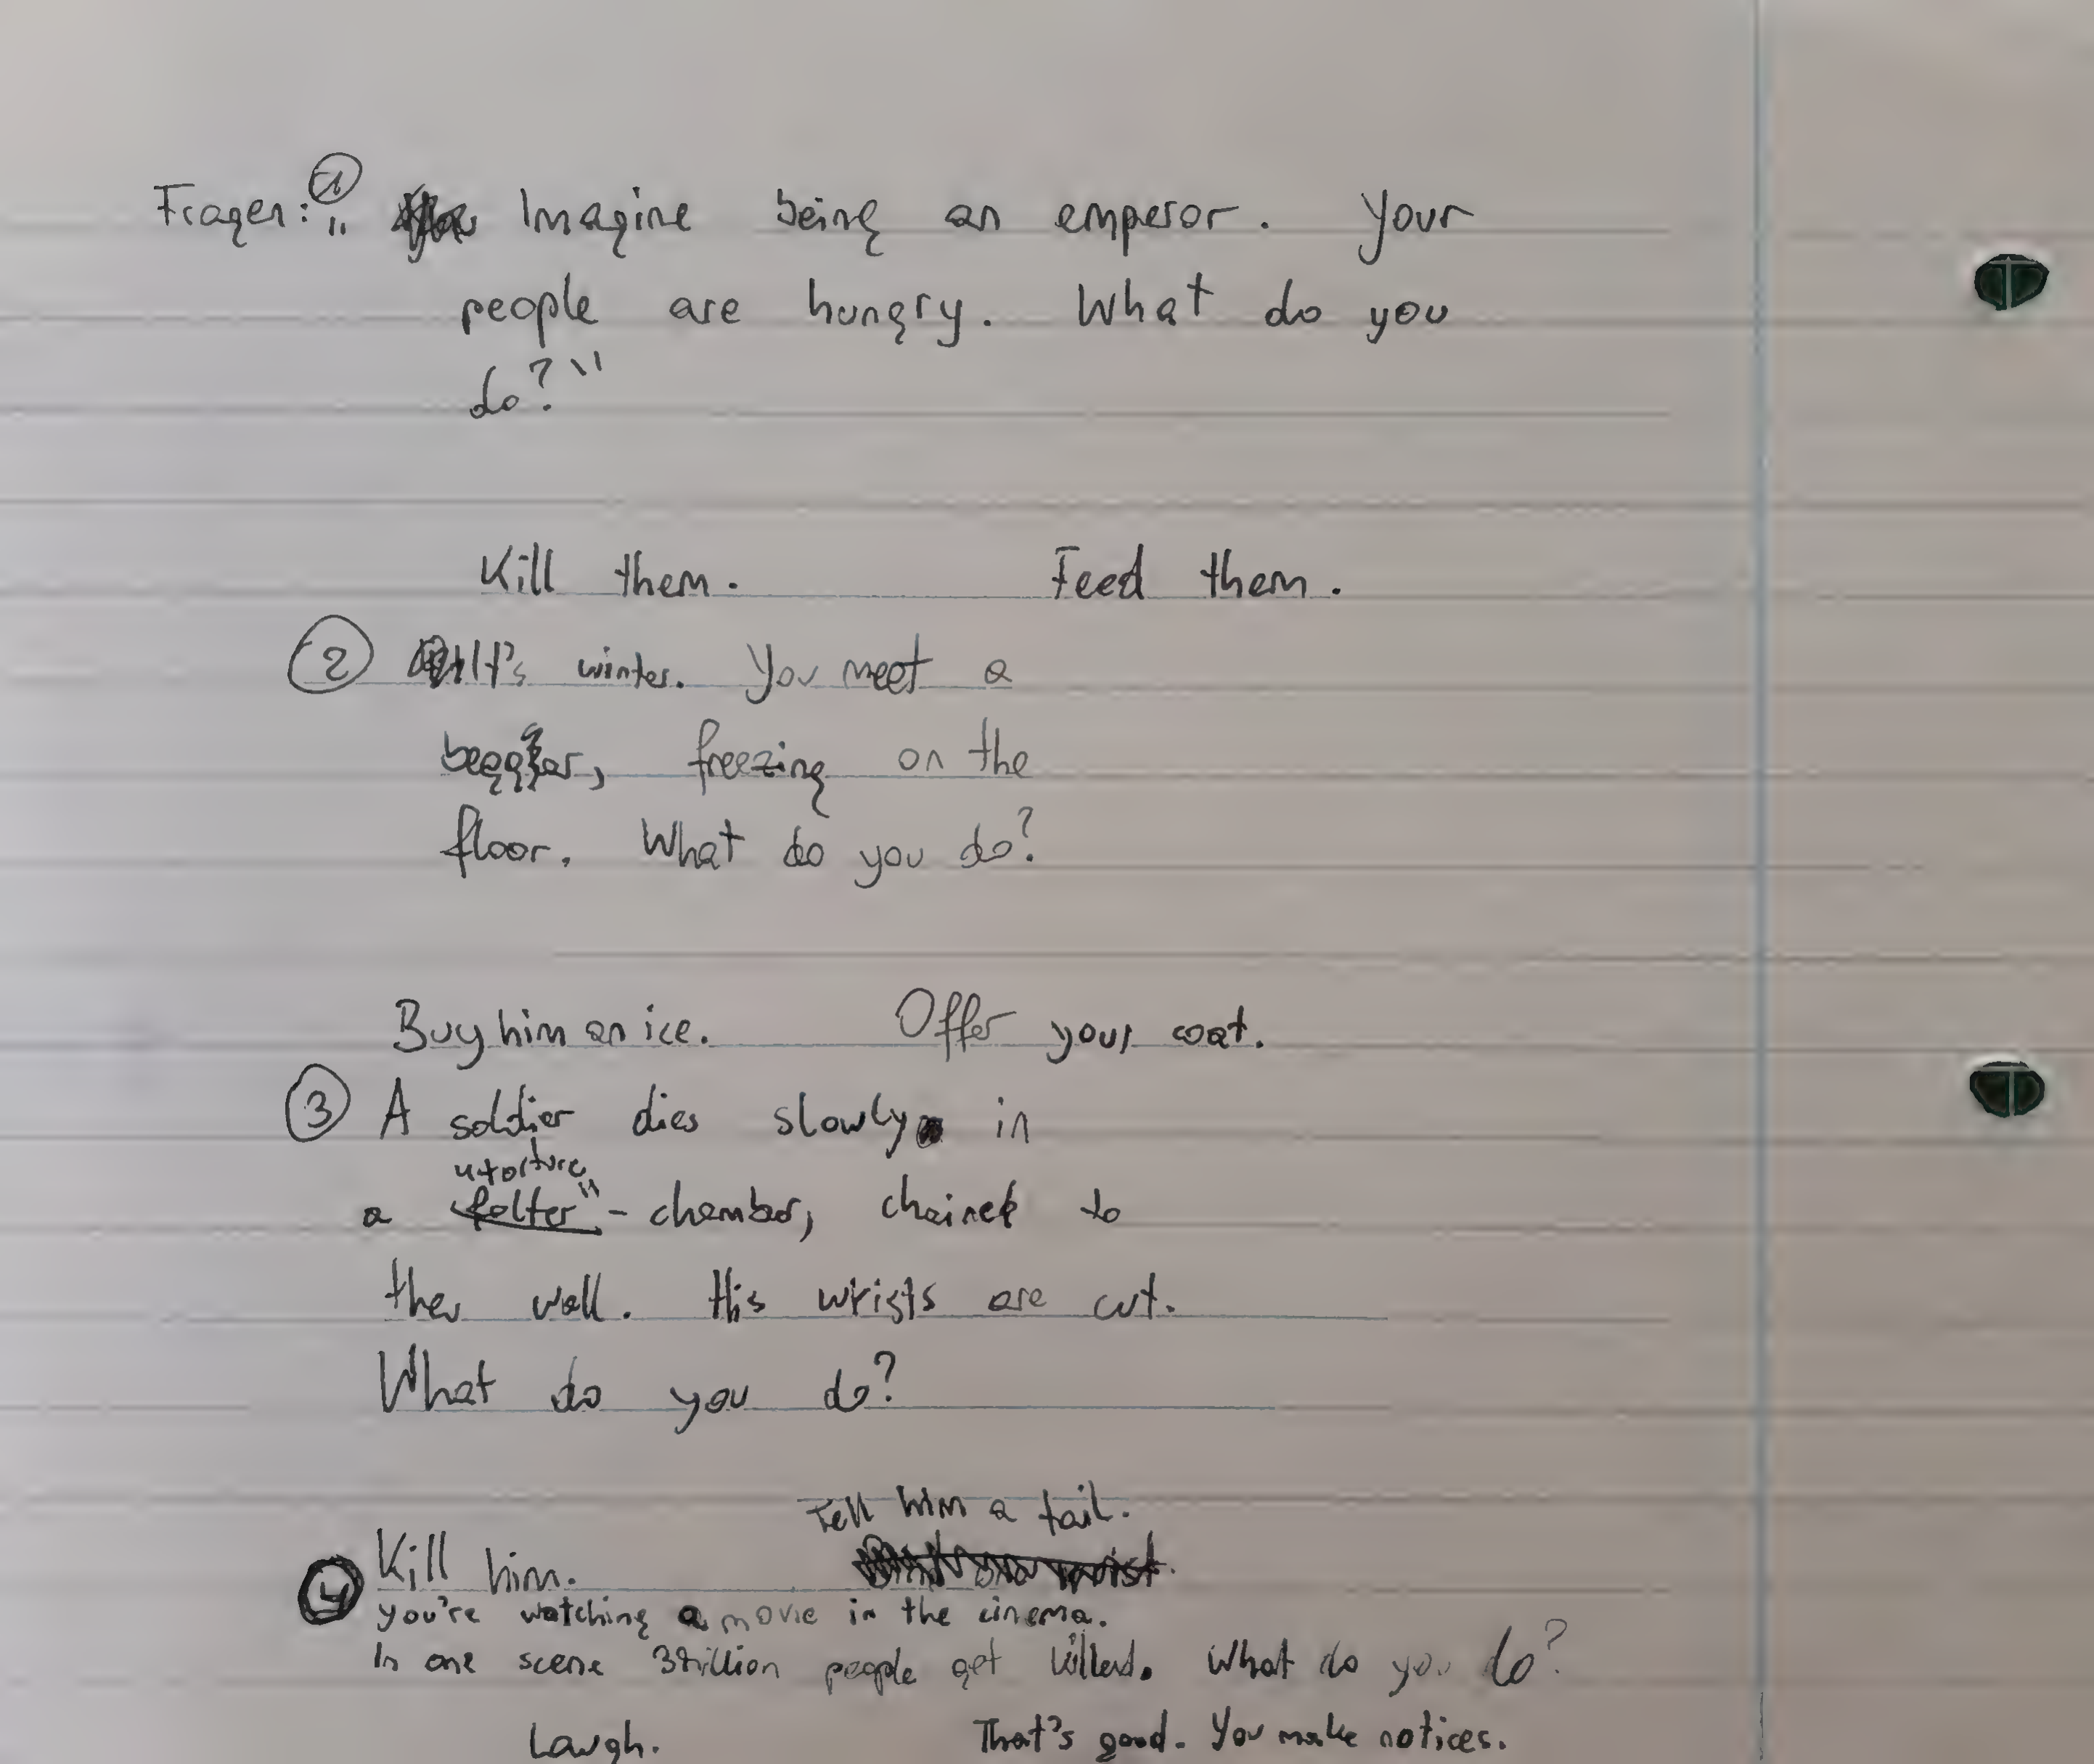 Fragen: ① " Imagine being an emperor. Your
people are hungry. What do you
do?"
Kill them. Feed them.
② It's winter. You meet a
beggar, freezing on the
floor. What do you do?
Buy him an ice. Offer your coat.
③ A soldier dies slowly in
"torture
a folter" - chamber, chained to
the wall. His wrists are cut.
What do you do?
Tell him a tail.
Kill him.
④ you're watching a movie in the cinema.
In one scene people get killed. What do you do?
Laugh. That's good. You make notices.